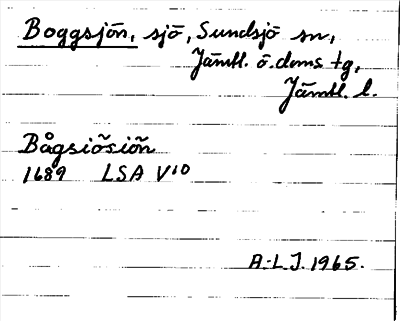 Boggsjön, sjö, Sundsjö sn,
Jämtl. ö. doms. tg,
Jämtl. l.
Bågsiösiön
1689 LSA V10
A.L.J. 1965.